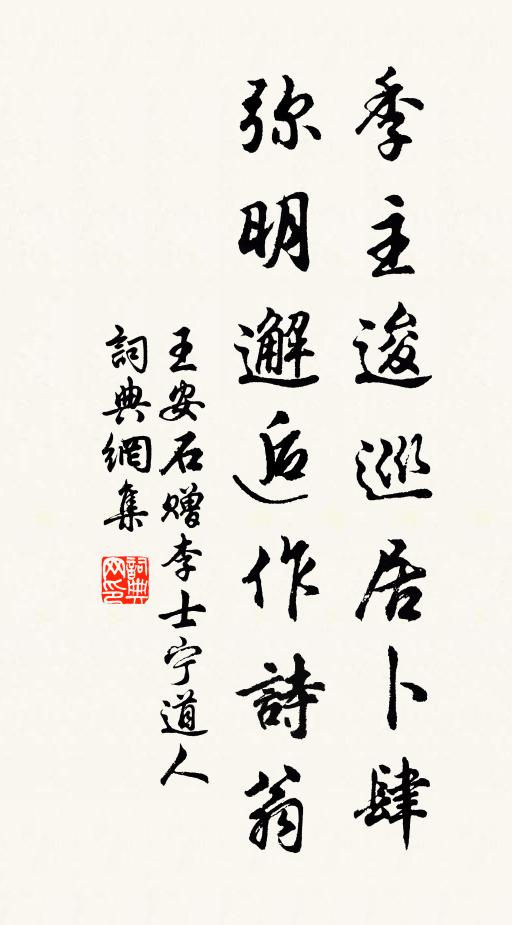 季主逡巡居卜肆
弥明邂逅作詩翁
王安石赠李士宁道人
詞典網集
詞典网印